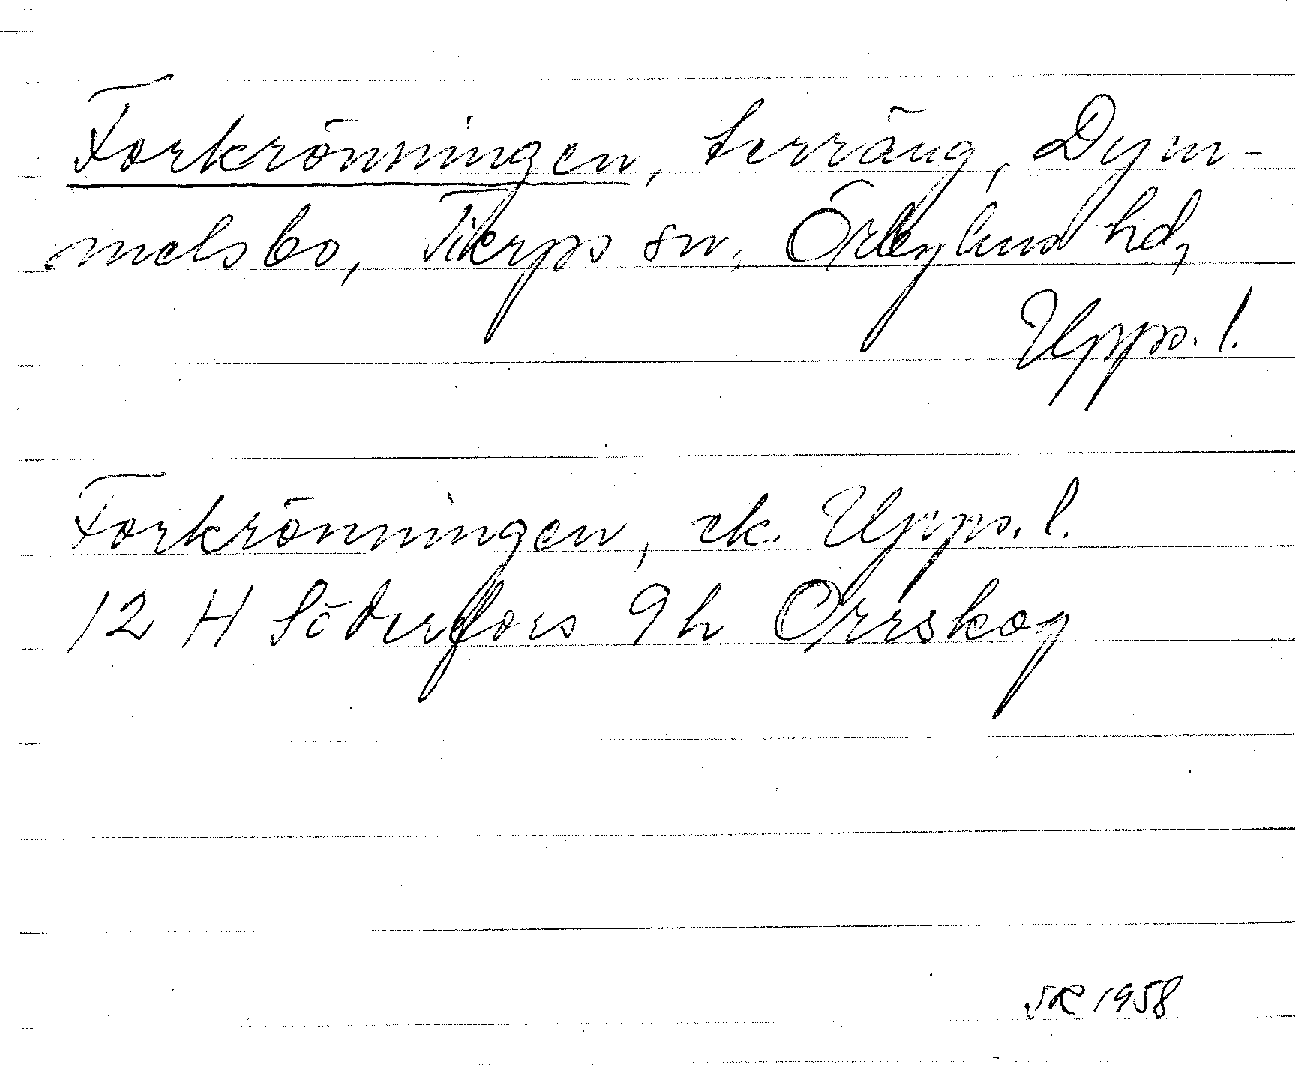 Forkrönningen, terräng, Dym-
melsbo, Tierps sn, Örbyhus hd,
Upps. l.
Forkrönningen, ek. Upps. l.
12 H Söderfors 9 h Orrskog
SR 1958